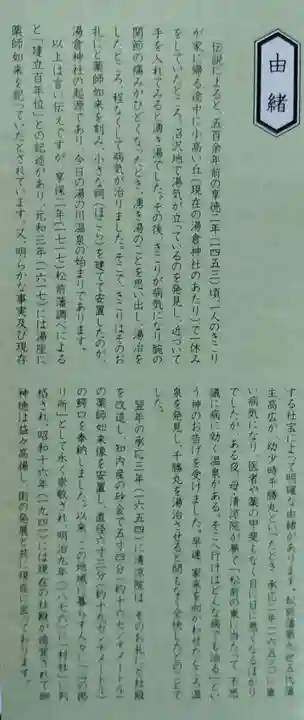 由緒
伝説によると、五百余年前の享徳二年(一四五三)頃、一人のきこり
が家に帰る途中に小高い丘(現在の湯倉神社のあたり)で一休み
をしていたところ、沼沢地で湯気が立っているのを発見し、近づいて
手を入れてみると湧き湯でした。その後、きこりが病気になり腕の
関節の痛みがひどくなったとき、湧き湯のことを思い出し、湯治を
したところ、程なくして病気が治りました。そこで、きこりはそのお
礼にと薬師如来を刻み、小さな祠(ほこら)を建てて安置したのが、
湯倉神社の起源であり、今日の湯の川温泉の始まりであります。
以上は言い伝えですが、享保二年(一七一七)松前藩調べによる
と「建立百年位」との記述があり、元和三年(一六一七)には湯座に
薬師如来を祀っていたとされています。又、明らかな事実及び現存
する社宝によって明確な由緒があります。松前藩第九世五代藩
主高広が幼少時千勝丸といったとき、承応二年(一六五三)に重
い病気になり、医者や薬の甲斐もなく日に日に悪くなるばかり
でしたが、ある夜、母・清涼院が夢で「松前の東に当たって不思
議に病に効く温泉がある。そこへ行けばどんな病でも治る」とい
う神のお告げを受けました。早速、家来を向かわせたところ温
泉を発見し、千勝丸を湯治させると間もなく全快したとのことで
した。
翌年の承応三年(一六五四)に清涼院は、そのお礼に社殿
を改造し、知内産の砂金で五寸四分(約十六センチメートル)
の薬師如来像を安置し、直径六寸三分(約十九センチメートル)
の鰐口を奉納しました。以来、この地域に暮らす人々に「心の拠
り所」として永く崇敬され、明治九年(一八七六)に「村社」に列
格され、昭和十六年(一九四一)には現在の社殿が造営されて御
神徳は益々高揚し、街の発展と共に現在に至っております。